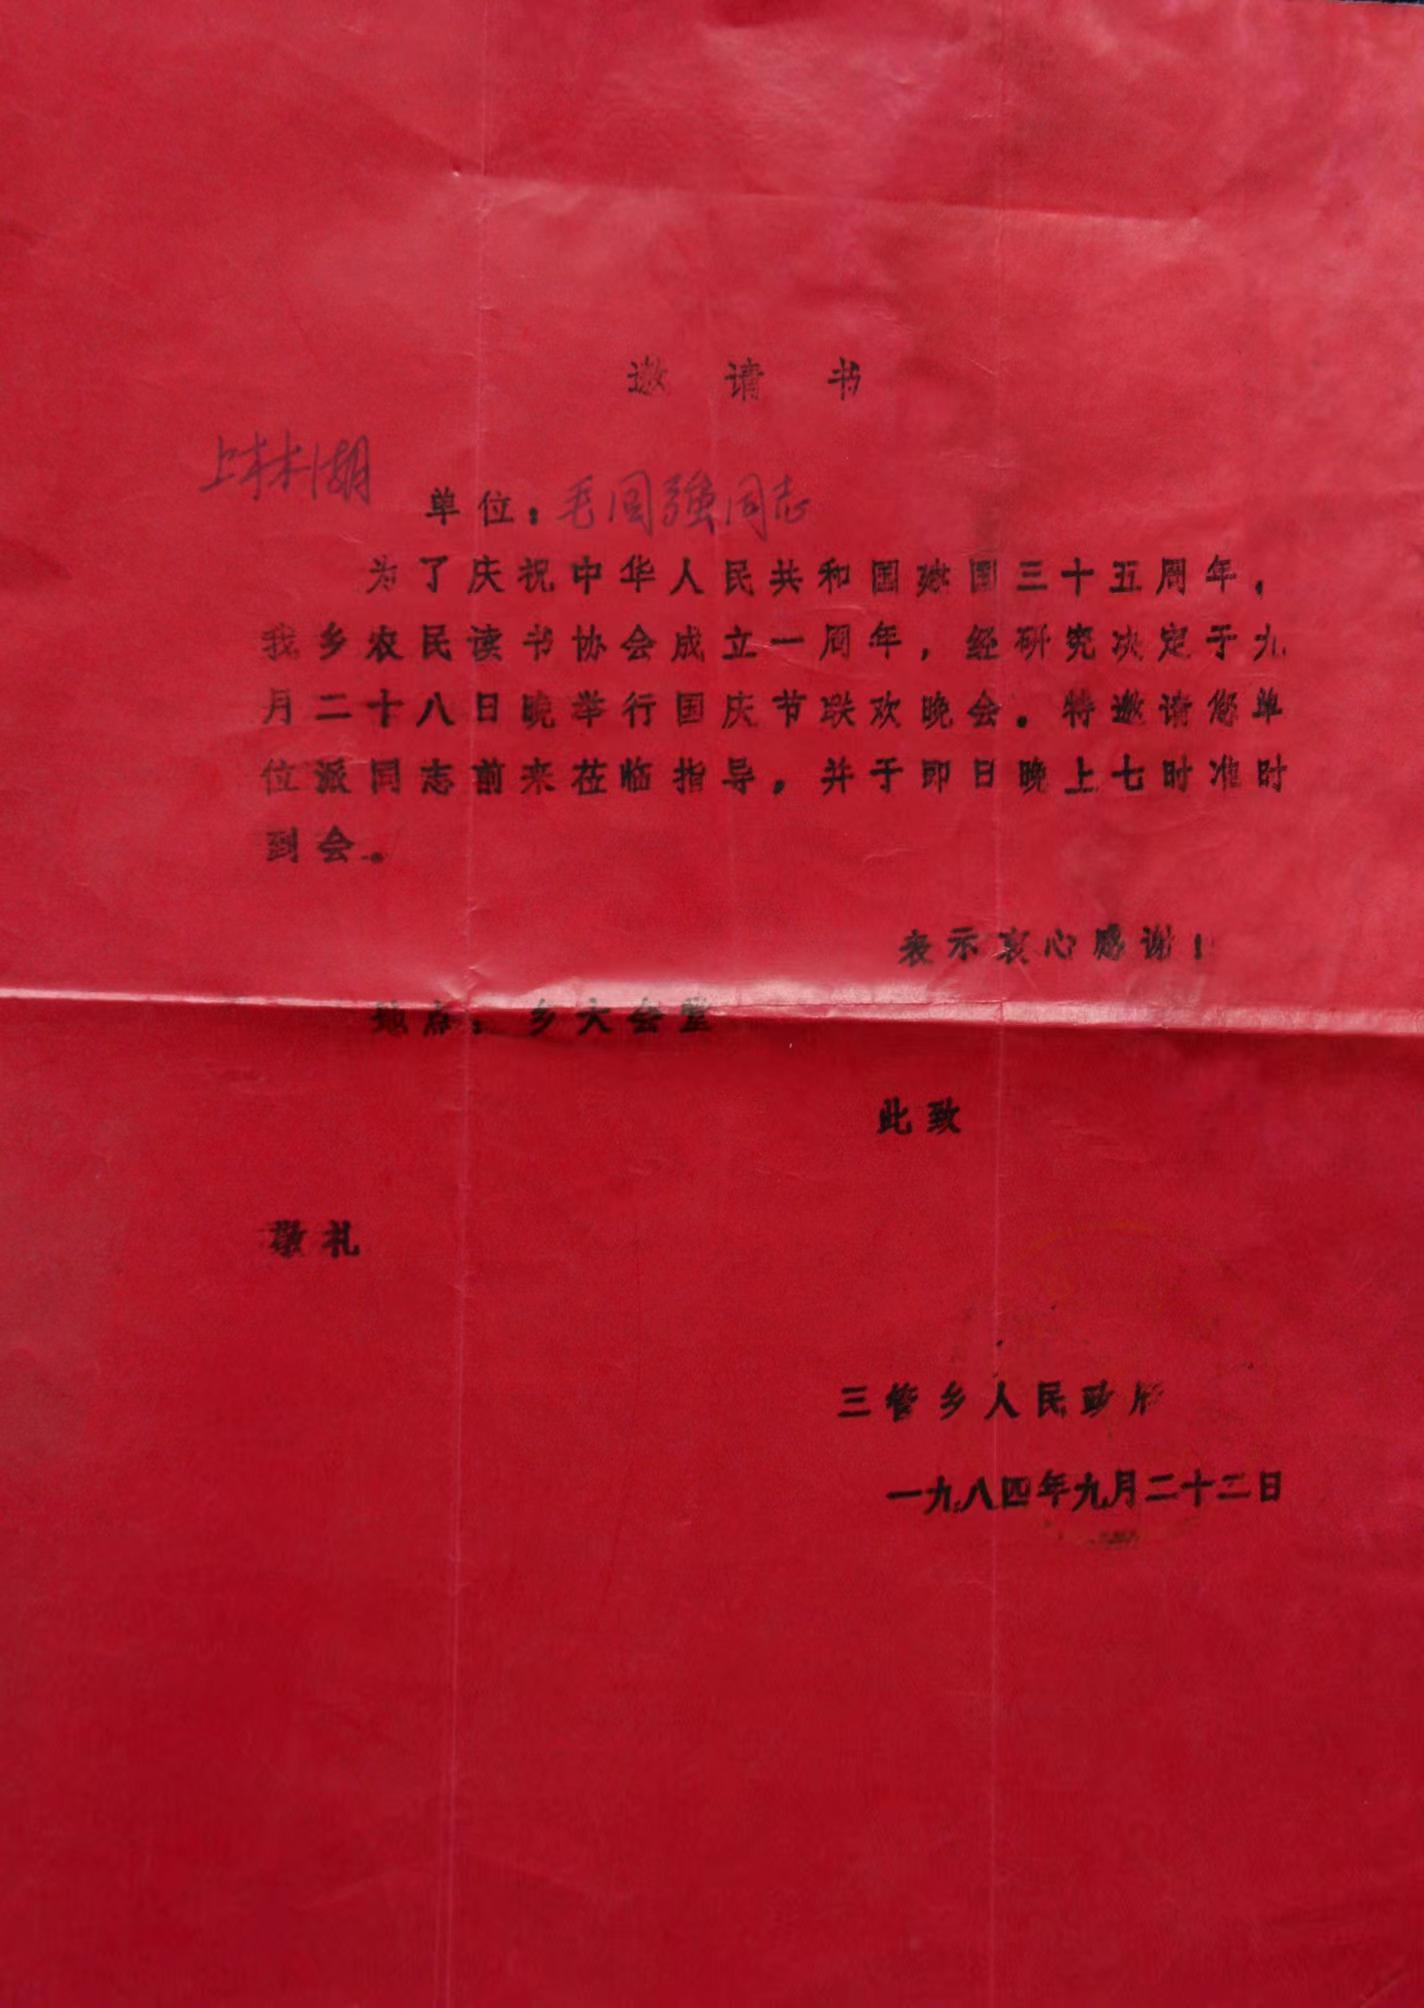 邀请书
上林湖 单位：毛国强同志
为了庆祝中华人民共和国建国三十五周年，
我乡农民读书协会成立一周年，经研究决定于九
月二十八日晚举行国庆节联欢晚会。特邀请您单
位派同志前来莅临指导，并于即日晚上七时准时
到会。
表示衷心感谢！
地点：乡大会堂
此致
敬礼
三管乡人民政府
一九八四年九月二十二日